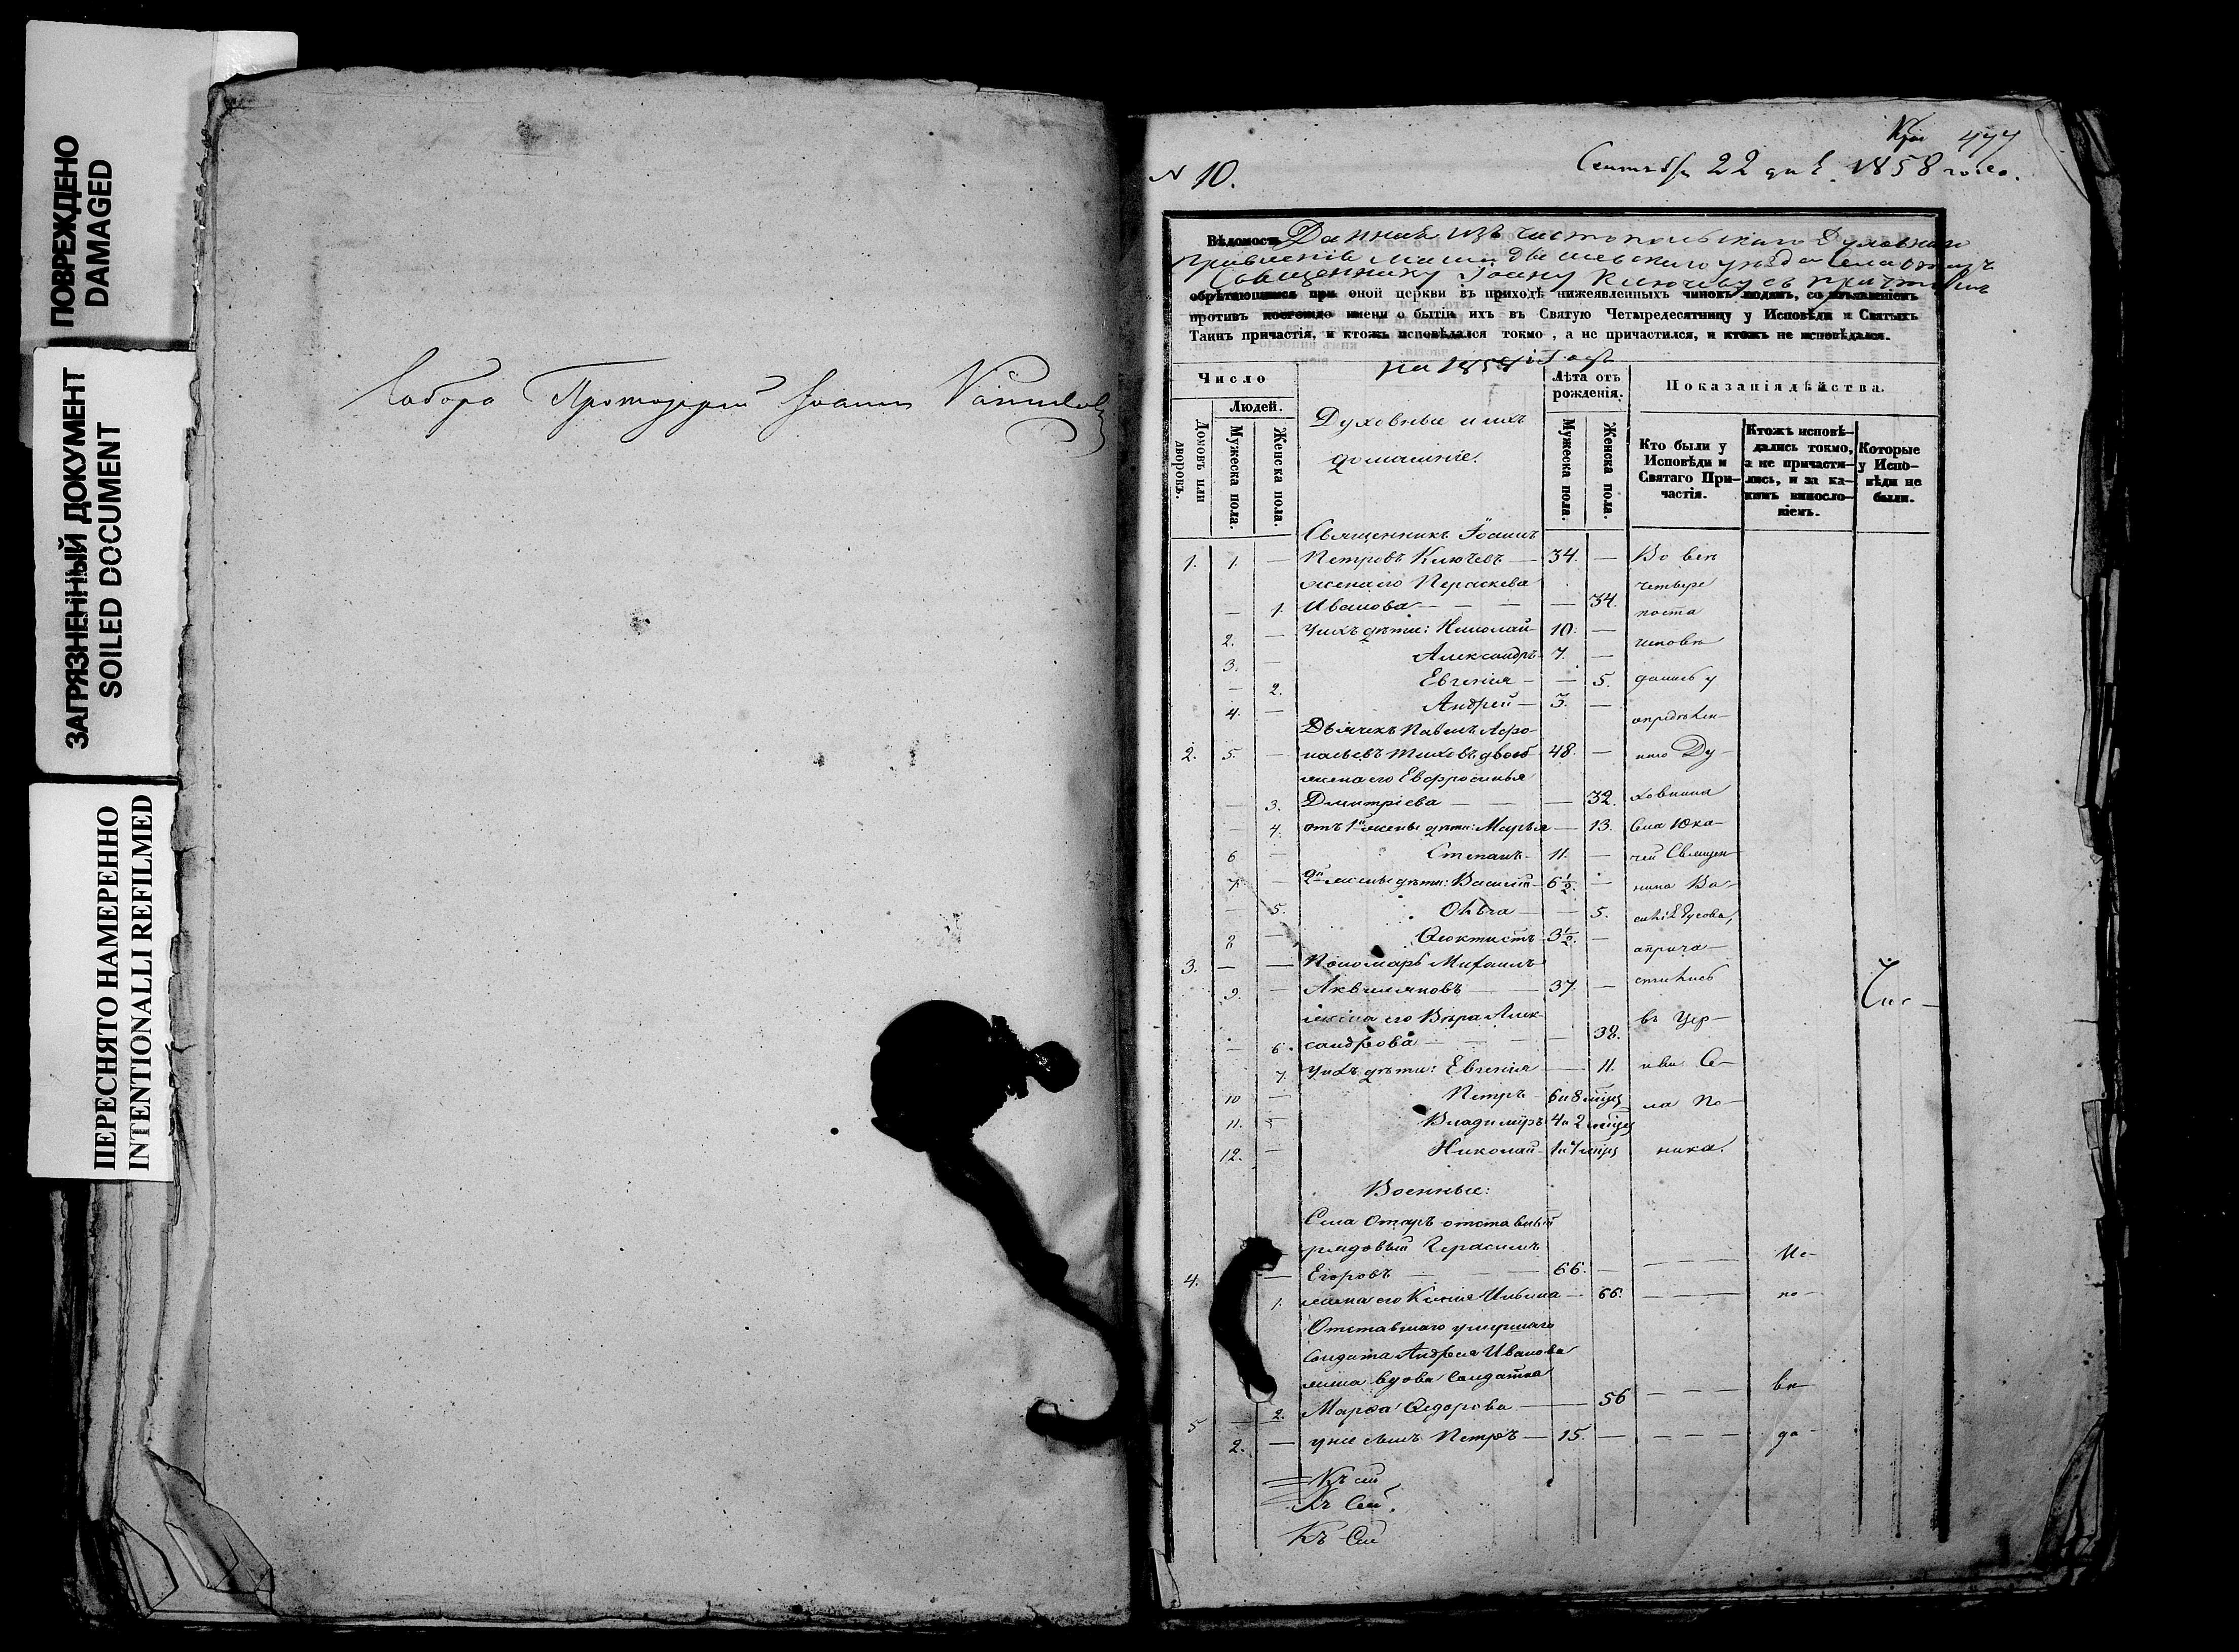 ПОВРЕЖДЕНО
DAMAGED
ЗАГРЯЗНЕННЫЙ ДОКУМЕНТ
SOILED DOCUMENT
ПЕРЕСНЯТО НАМЕРЕННО
INTENTIONALLI REFILMED
Собора Протоіерей Іоаннъ
477
N 10.
Сентября 22 дня 1858 года.
Вѣдомость Данная изъ Чистопольскаго Духовнаго
Правленія уѣзда Села Отаръ
Священнику Іоанну Ключеву съ причтомъ
обрѣтающимся при оной церкви въ приходѣ нижеявленныхъ чиновъ людямъ, со изъявленіемъ
противъ коегождо имени о бытіи ихъ въ Святую Четыредесятницу у Исповѣди и Святыхъ
Таинъ причастія, и ктожъ исповѣдался токмо, а не причастился, и ктожъ не исповѣдался.
на 1858й годъ
Число
Людей.
Домовъ или дворовъ.
Мужеска пола.
Женска пола.
Духовные и ихъ
домашніе.
Лѣта отъ рожденія.
Мужеска пола.
Женска пола.
Показанія дѣйства.
Кто были у Исповѣди и Святаго Причастія.
Ктожъ исповѣдались токмо, а не причастились, и за какимъ винословіемъ.
Которые у Исповѣди не были.
Священникъ Іоаннъ
1. 1. — Петровъ Ключевъ — 34. — Во всѣ
жена его Параскева четыре
— 1. Иванова — — — — 34. поста
2. — У нихъ дѣти: Николай 10. — исповѣ
3. — Александръ 7. —
— 2. Евгенія — — 5. дались у
4. — Андрей — 3. — опредѣлен-
Дьячекъ Павелъ
2. 5. — 48. — наго Ду-
жена его Евфросинья
— 3. Дмитріева — — — 32. ховника
— 4. отъ 1й жены дѣти: Марья — 13. села Юка-
6 — Степанъ 11. — чей Священ-
7. — 2й жены дѣти: Василій 6½. — ника Ва-
— 5. Ольга — — 5.
8 — Ѳеоктистъ 3½. — а прича-
3. — — Пономарь Михаилъ
9. — Аквиляновъ — 37. — стились
жена его Вѣра Алек- въ Цер-
— 6. сандрова — — — 38.
7. У нихъ дѣти: Евгенія — 11. кви Се-
10 — Петръ 6 и 8 мѣц ла По-
11. — Владиміръ 4 и 2 мѣц
12. — Николай 1 и 7 мѣц ника.
Военные:
Села Отаръ отставный
рядовый Герасимъ Не-
4. — Егоровъ — — 66. —
1. жена его Ксенія Ильина — 66. — — по-
Отставнаго умершаго
солдата Андрея Иванова
жена вдова солдатка
5 — 2. Марѳа Ѳедорова — — 56 — — — вѣ-
2. — у ней сынъ Петръ — 15. — — — — да-
Къ сей
Къ Сей
Къ Сей